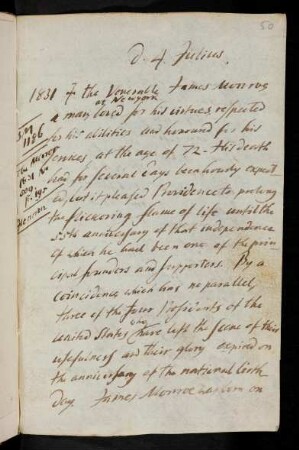 50
d. 4. Julius.
1831 † the Venerable James Monroe
at Newyork
a man loved for his virtues, respected
for his abilities and honoured for his
services at the age of 72. His death
had for several days been hourly expect
ed, but it pleased Providence to prolong
the flickering flame of life until the
55th anniversary of that independence
of which he had been one of the prin-
cipal founders and supporters. By a
coincidence which has no parallel,
three of the four Presidents of the
United States who have left the scene of their
usefulness and their glory expired on
the anniversary of the national birth
day. James Monroe was born on
1186
1831 N.